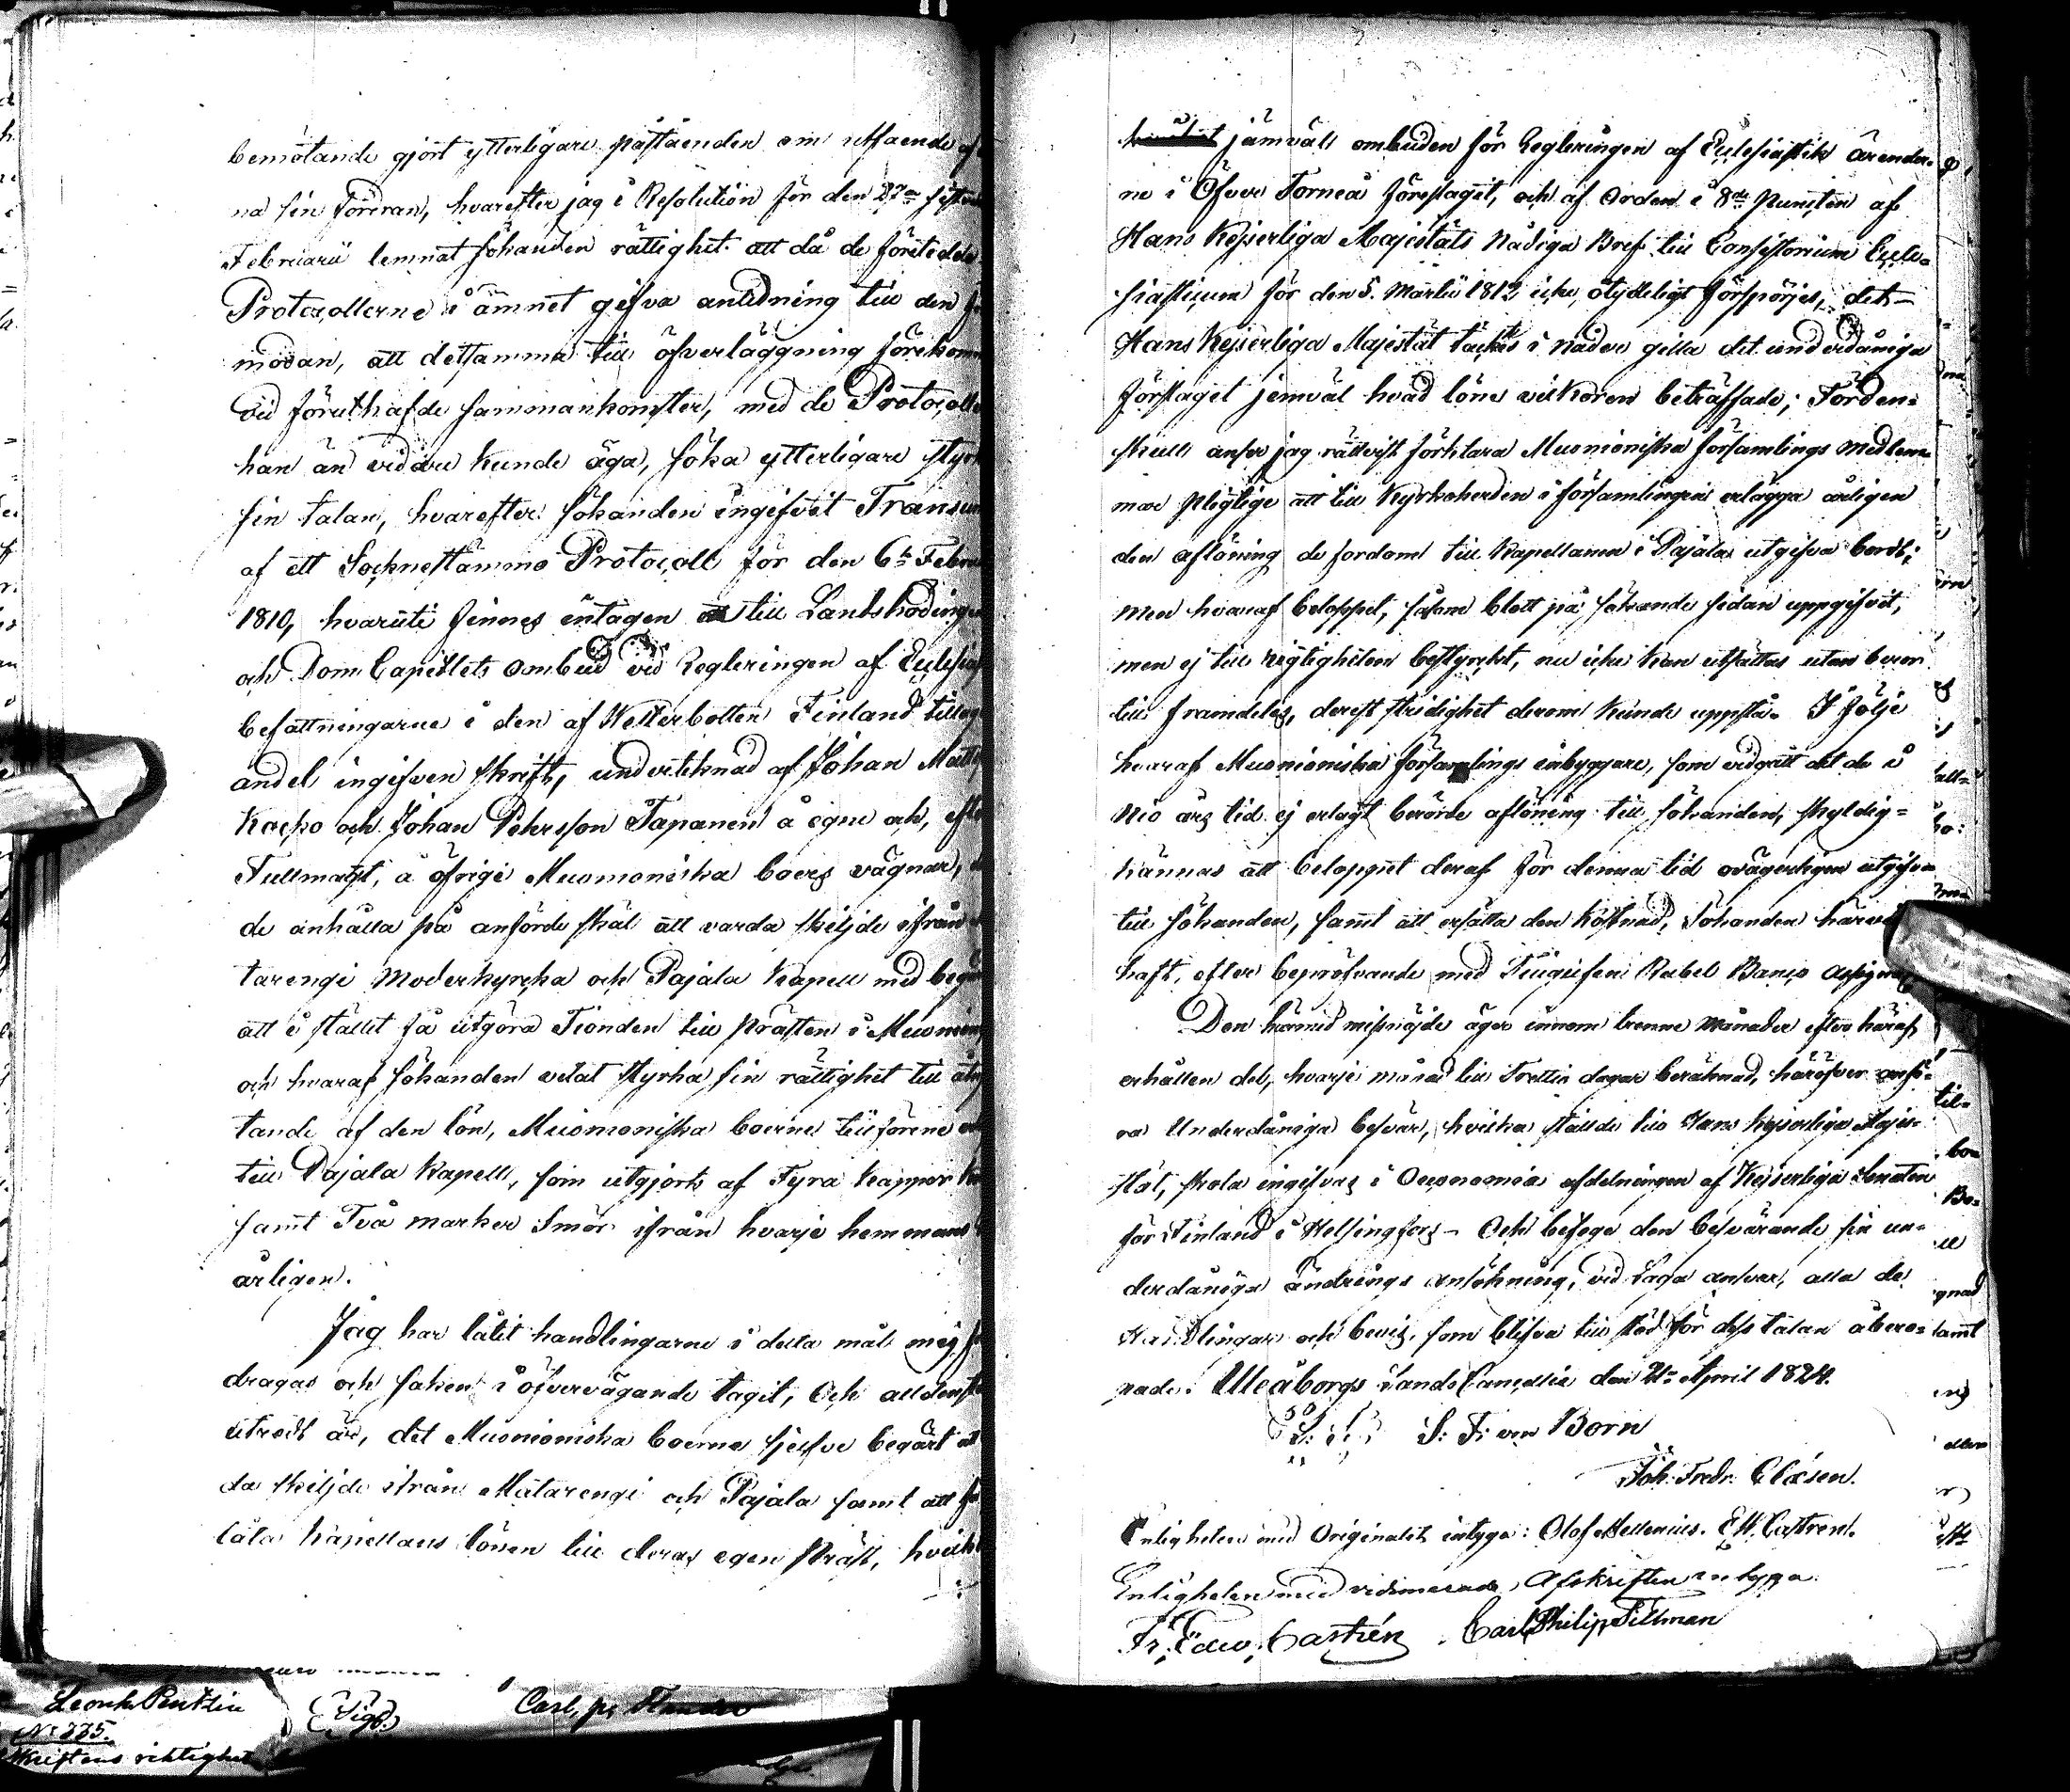 bemötande gjort ytterligare påståenden om utfaende af
na sin fordran, hvarefter jag i Resolution för den 27de sistl
Februarii lemnat sökanden rättighet att då de företedde
Protocollerne i ämnet gifva anledning till den
modan, att detsamma till öfverläggning förekom
vid föruthafde sammankomster, med de Protocoll
han än vidare kunde äga, söka ytterligare styrk
sin talan, hvarefter sökanden ingifvit Transum
af ett Socknestämmo Protocoll för den 6te Febru
1810, hvaruti finnes intagen till Landshöfdinge
och Dom Capitlets ombud vid Regleringen af Ecclesias
befattningarne i den af Westerbotten Finland tillag
andel ingifven skrift, undertecknad af Johan Matts
Kocko och Johan Pehrsson Tapanen å egne och, efte
Fullmagt, å öfrige Muonioniska boers vägnar,
de anhålla på anförde skäl att varda skiljde ifrån
tarengi Moderkyrcka och Pajala Kapell med begä
att i stället få utgöra Tionden till Prästen i Muonion
och hvaraf sökanden velat styrka sin rättighet till åtnj
tande af den lön, Muonioniska boerne tillförene
till Pajala Kapell, som utgjorts af Fyra Kappor
samt Två marker Smör ifrån hvarje hemmans
årligen.
Jag har låtit handlingarne i detta mål mig fö
dragas och saken i öfvervägande tagit, Och alldenst
utredt är, det Muonioniska boerne sjelfve begärt at
da skiljde ifrån Matarengi och Pajala samt att få
låta Kapellans lönen till deras egen Präst, hvilk
jämväll ombuden för Regleringen af Ecclesiastik ärender
ne i Öfver Torneå föreslagit, och af Orden i 8de Puncten af
Hans Kejserliga Majestäts Nådiga Bref till Consistorium Eccle-
siasticum för den 5. Martii 1812 icke otydeligt förspörjes, det
Hans Kejserliga Majestät täckts i Nåder gilla det underdåniga
förslaget jemväl hvad löne vilkoren beträffade; Fördens-
skull anser jag rättvist förklara Muonioniska församlings medlem-
mar pligtige att till Kyrkoherden i församlingen erlägga årligen
den aflöning de fordom till Kapellanen i Pajala utgifva bordt;
men hvaraf beloppet, såsom blott på sökande sidan uppgifvit,
men ej till rigtigheten bestyrckt, nu icke kan utsättas utan beror
till framdeles, derest stridighet derom kunde uppstå. I följe
hvaraf Muonioniska församlings inbyggare, som vidgått det de i
Nio års tid ej erlagt berörde aflöning till sökanden, skyldig-
kännas att beloppet deraf för denna tid ovägerligen utgifva
till sökanden, samt att ersätta den kostnad, Sökanden härvid
haft, efter bepröfvande med Tiugufem Rubel Banco Assignat
Den härmed misnöjde äger innom trenne månader efter häraf
erhållen del, hvarje månad till Trettio dagar beräknad, häröfver anfö-
ra Underdåniga besvär, hvilka ställde till Hans Kejserliga Maje-
stät, skola ingifvas i Oeconomiæ afdelningen af Kejserliga Senaten
för Finland i Helsingfors - Och besege den besvärande sin un-
derdåniga ändrings ansökning, vid laga ansvar, alla de
Handlingar och bevis, som blifva till stöd för dess talan åbero-
pade. Uleåborgs Lands Cancellie den April 1824.
L: S: S: F: von Born
Joh: Fredr: Clasen.
Enligheten med Originalet intyga: Olof Mellenius. E W. Castren.
Enligheten med vidimerade Afskriften intyga
Fr: Edw: Castrén Carl Philip Tillman
Leonh Pentzin
No 335.
(Sigd.)
Carl, ps
skriftens riktighet